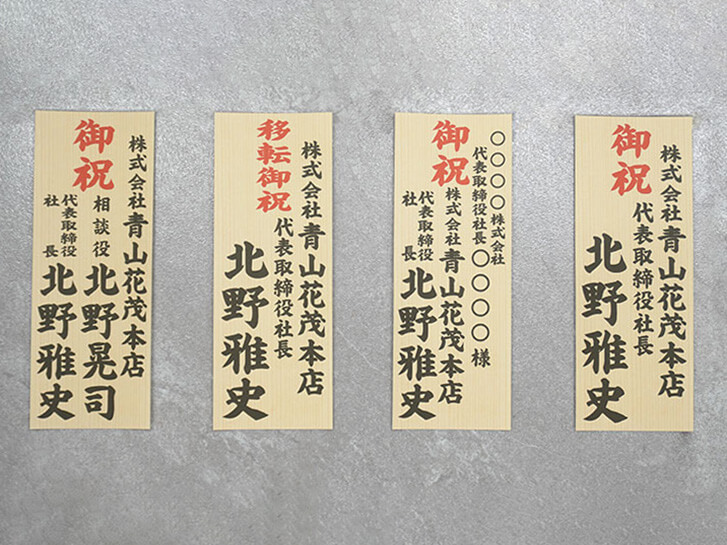 御祝
株式会社青山花茂本店
代表取締役社長
北野雅史
〇〇〇〇株式会社
代表取締役社長〇〇〇〇様
御祝
株式会社青山花茂本店
代表取締役
社長
北野雅史
移転御祝
株式会社青山花茂本店
代表取締役社長
北野雅史
御祝
株式会社青山花茂本店
相談役
北野晃司
代表取締役
社長
北野雅史